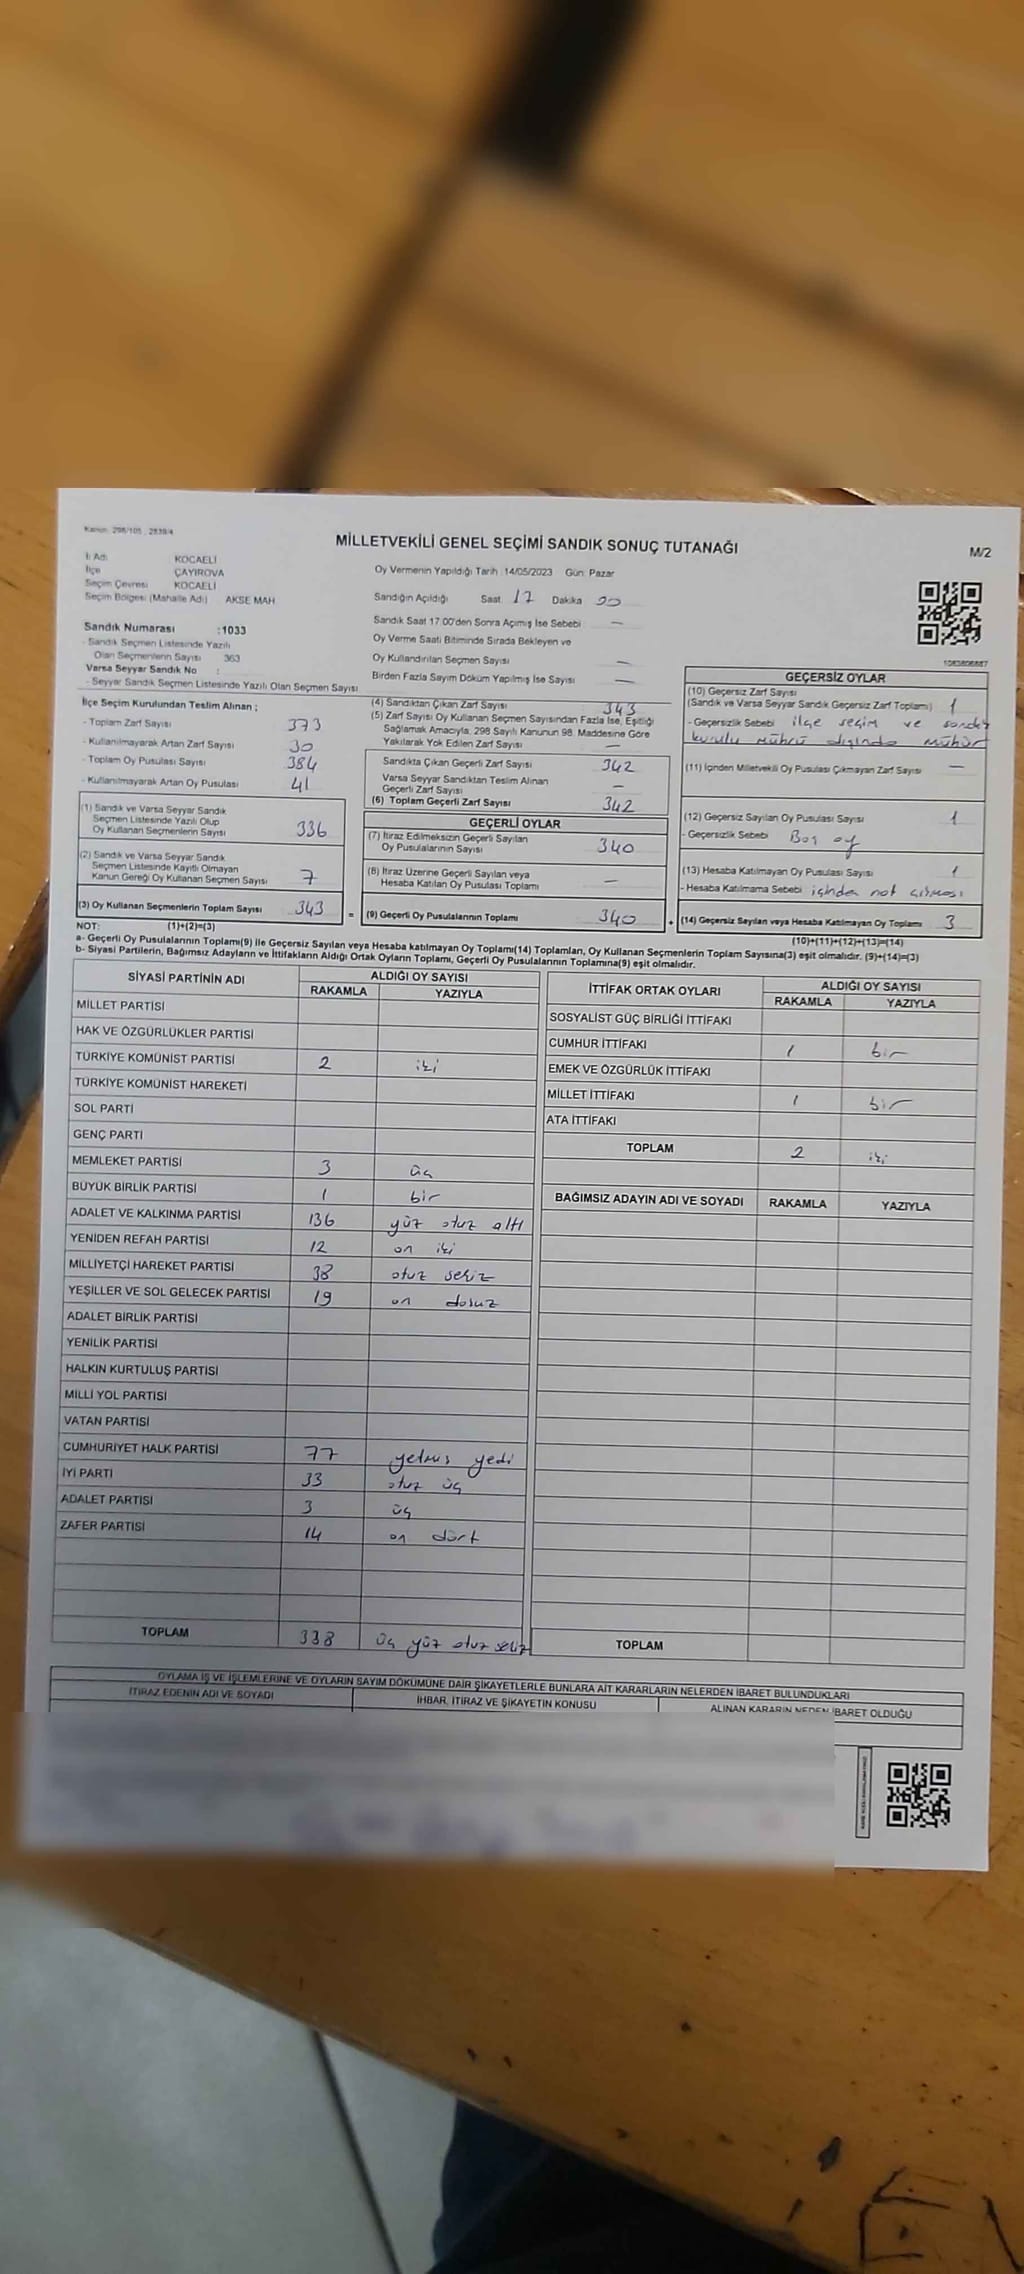 Kanun: 298/105 , 2839/4
MİLLETVEKİLİ GENEL SEÇİMİ SANDIK SONUÇ TUTANAĞI
M/2
İl Adı KOCAELİ
İlçe ÇAYIROVA
Seçim Çevresi KOCAELİ
Seçim Bölgesi (Mahalle Adı) AKSE MAH
Oy Vermenin Yapıldığı Tarih : 14/05/2023 Gün: Pazar
Sandığın Açıldığı Saat 17 Dakika 00
Sandık Saat 17:00'den Sonra Açımış İse Sebebi —
Oy Verme Saati Bitiminde Sırada Bekleyen ve
Oy Kullandırılan Seçmen Sayısı —
Birden Fazla Sayım Döküm Yapılmış İse Sayısı —
Sandık Numarası :1033
- Sandık Seçmen Listesinde Yazılı
Olan Seçmenlerin Sayısı 363
Varsa Seyyar Sandık No :
- Seyyar Sandık Seçmen Listesinde Yazılı Olan Seçmen Sayısı
İlçe Seçim Kurulundan Teslim Alınan ;
- Toplam Zarf Sayısı 373
- Kullanılmayarak Artan Zarf Sayısı 30
- Toplam Oy Pusulası Sayısı 384
- Kullanılmayarak Artan Oy Pusulası 41
(1) Sandık ve Varsa Seyyar Sandık
Seçmen Listesinde Yazılı Olup
Oy Kullanan Seçmenlerin Sayısı 336
(2) Sandık ve Varsa Seyyar Sandık
Seçmen Listesinde Kayıtlı Olmayan
Kanun Gereği Oy Kullanan Seçmen Sayısı 7
(3) Oy Kullanan Seçmenlerin Toplam Sayısı 343 =
(4) Sandıktan Çıkan Zarf Sayısı 343
(5) Zarf Sayısı Oy Kullanan Seçmen Sayısından Fazla İse, Eşitliği
Sağlamak Amacıyla, 298 Sayılı Kanunun 98. Maddesine Göre
Yakılarak Yok Edilen Zarf Sayısı —
Sandıkta Çıkan Geçerli Zarf Sayısı 342
Varsa Seyyar Sandıktan Teslim Alınan
Geçerli Zarf Sayısı —
(6) Toplam Geçerli Zarf Sayısı 342
GEÇERLİ OYLAR
(7) İtiraz Edilmeksizin Geçerli Sayılan
Oy Pusulalarının Sayısı 340
(8) İtiraz Üzerine Geçerli Sayılan veya
Hesaba Katılan Oy Pusulası Toplamı —
(9) Geçerli Oy Pusulalarının Toplamı 340 +
1083806887
GEÇERSİZ OYLAR
(10) Geçersiz Zarf Sayısı
(Sandık ve Varsa Seyyar Sandık Geçersiz Zarf Toplamı) 1
- Geçersizlik Sebebi ilçe seçim ve sandık
kurulu mührü dışında mühür
(11) İçinden Milletvekili Oy Pusulası Çıkmayan Zarf Sayısı —
(12) Geçersiz Sayılan Oy Pusulası Sayısı 1
- Geçersizlik Sebebi Boş oy
(13) Hesaba Katılmayan Oy Pusulası Sayısı 1
- Hesaba Katılmama Sebebi içinden not çıkması
(14) Geçersiz Sayılan veya Hesaba Katılmayan Oy Toplamı 3
NOT: (1)+(2)=(3)
(10)+(11)+(12)+(13)=(14)
a- Geçerli Oy Pusulalarının Toplamı(9) ile Geçersiz Sayılan veya Hesaba katılmayan Oy Toplamı(14) Toplamları, Oy Kullanan Seçmenlerin Toplam Sayısına(3) eşit olmalıdır. (9)+(14)=(3)
b- Siyasi Partilerin, Bağımsız Adayların ve İttifakların Aldığı Ortak Oyların Toplamı, Geçerli Oy Pusulalarının Toplamına(9) eşit olmalıdır.
SİYASİ PARTİNİN ADI ALDIĞI OY SAYISI
RAKAMLA YAZIYLA
MİLLET PARTİSİ
HAK VE ÖZGÜRLÜKLER PARTİSİ
TÜRKİYE KOMÜNİST PARTİSİ 2 iki
TÜRKİYE KOMÜNİST HAREKETİ
SOL PARTİ
GENÇ PARTİ
MEMLEKET PARTİSİ 3 üç
BÜYÜK BİRLİK PARTİSİ 1 bir
ADALET VE KALKINMA PARTİSİ 136 yüz otuz altı
YENİDEN REFAH PARTİSİ 12 on iki
MİLLİYETÇİ HAREKET PARTİSİ 38 otuz sekiz
YEŞİLLER VE SOL GELECEK PARTİSİ 19 on dokuz
ADALET BİRLİK PARTİSİ
YENİLİK PARTİSİ
HALKIN KURTULUŞ PARTİSİ
MİLLİ YOL PARTİSİ
VATAN PARTİSİ
CUMHURİYET HALK PARTİSİ 77 yetmiş yedi
İYİ PARTİ 33 otuz üç
ADALET PARTİSİ 3 üç
ZAFER PARTİSİ 14 on dört
TOPLAM 338 üç yüz otuz sekiz
İTTİFAK ORTAK OYLARI ALDIĞI OY SAYISI
RAKAMLA YAZIYLA
SOSYALİST GÜÇ BİRLİĞİ İTTİFAKI
CUMHUR İTTİFAKI 1 bir
EMEK VE ÖZGÜRLÜK İTTİFAKI
MİLLET İTTİFAKI 1 bir
ATA İTTİFAKI
TOPLAM 2 iki
BAĞIMSIZ ADAYIN ADI VE SOYADI RAKAMLA YAZIYLA
TOPLAM
OYLAMA İŞ VE İŞLEMLERİNE VE OYLARIN SAYIM DÖKÜMÜNE DAİR ŞİKAYETLERLE BUNLARA AİT KARARLARIN NELERDEN İBARET BULUNDUKLARI
İTİRAZ EDENİN ADI VE SOYADI İHBAR, İTİRAZ VE ŞİKAYETİN KONUSU ALINAN KARARIN NEDEN İBARET OLDUĞU